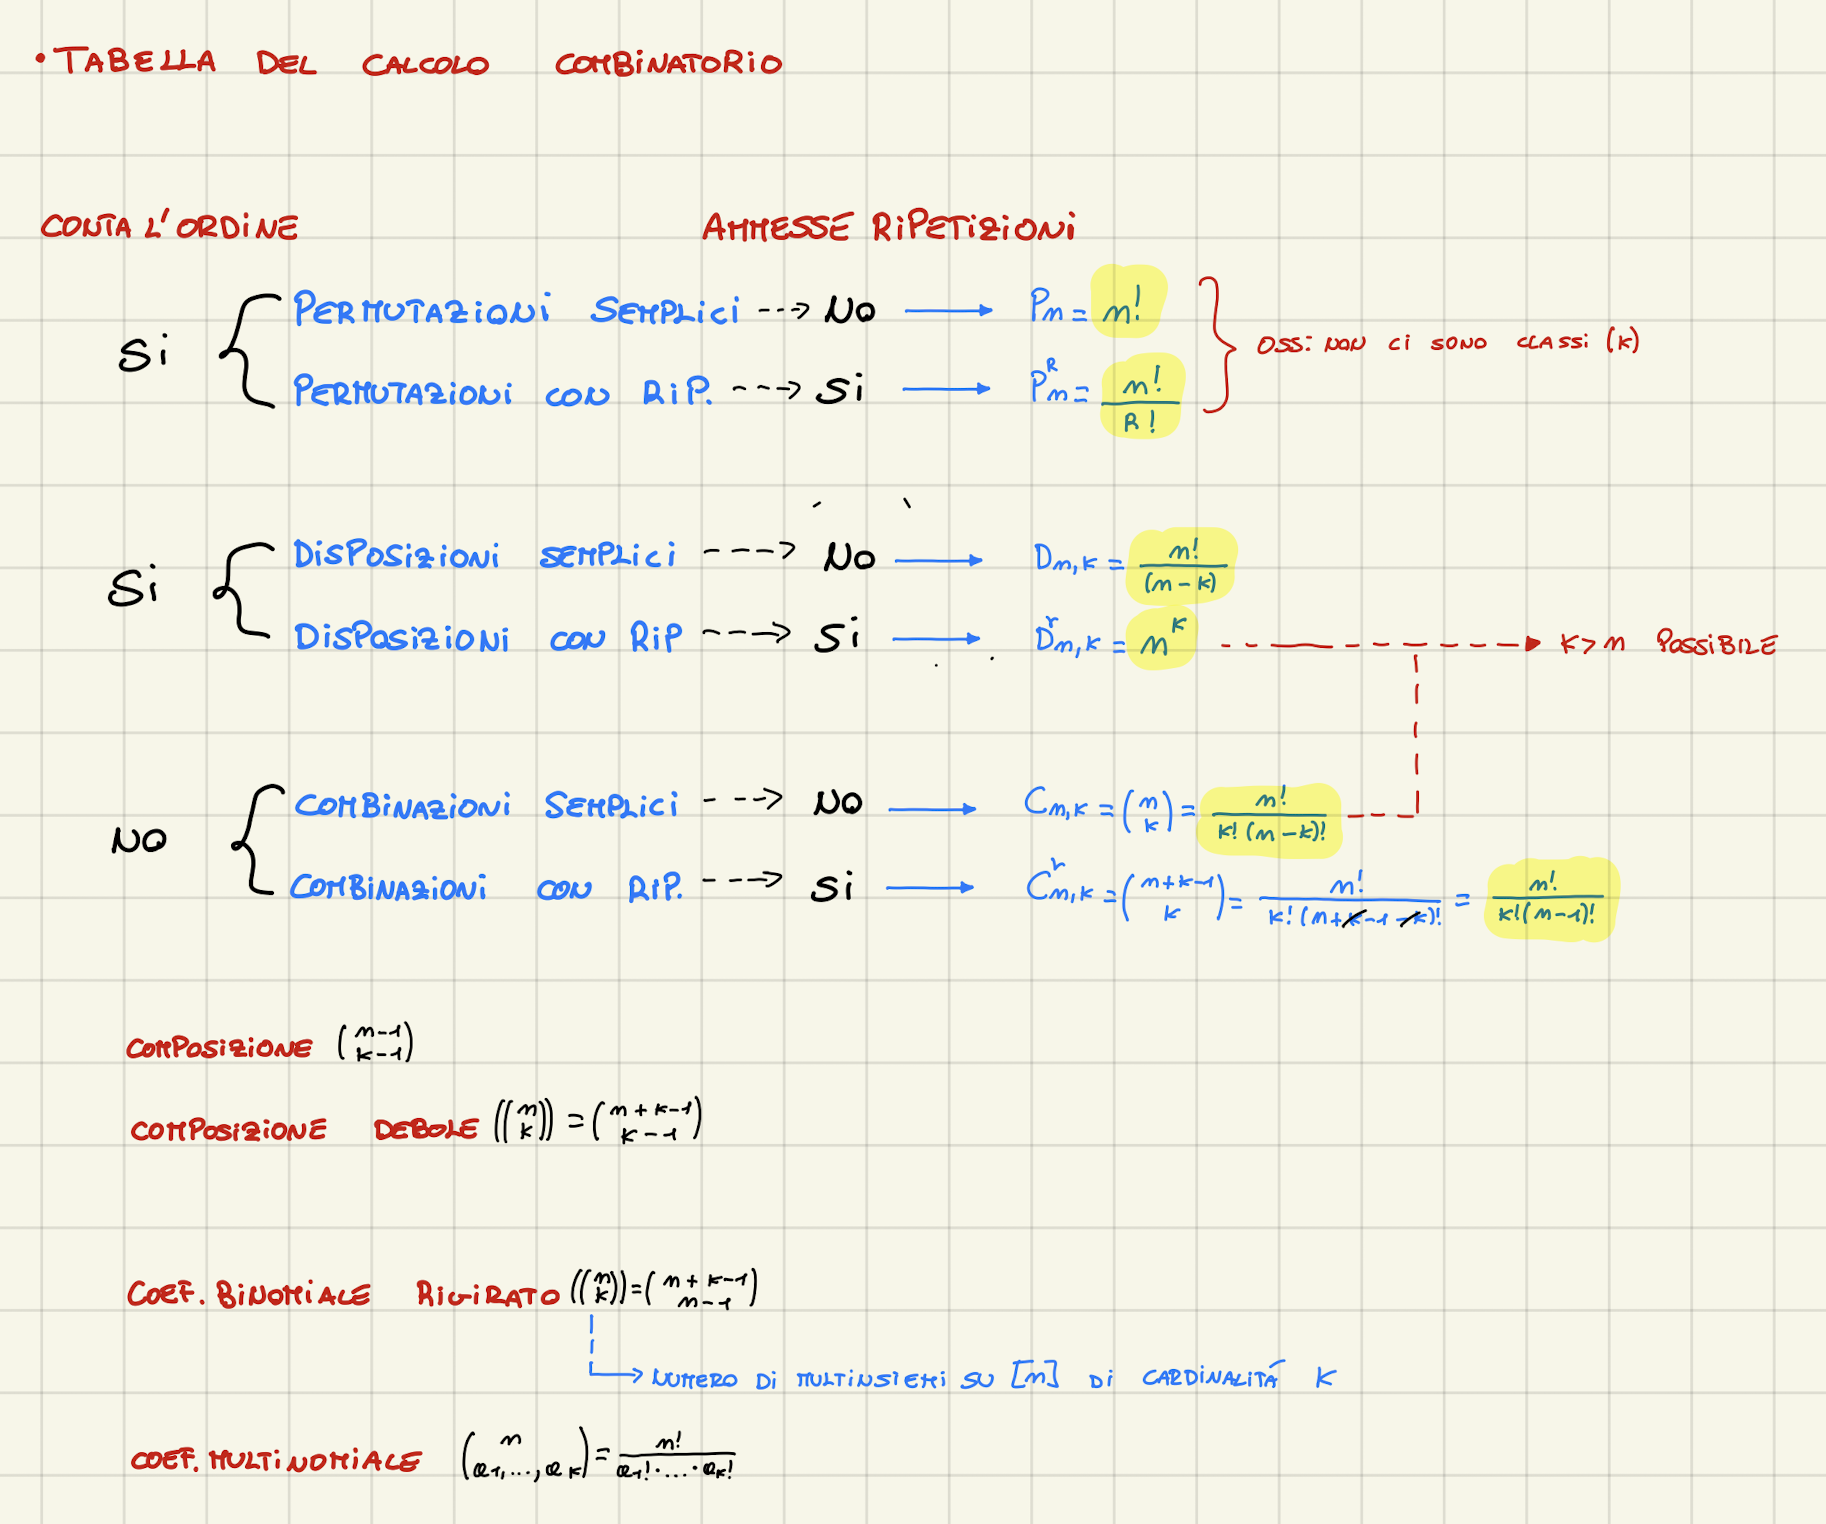 • TABELLA DEL CALCOLO COMBINATORIO
CONTA L'ORDINE AMMESSE RIPETIZIONI
SI { PERMUTAZIONI SEMPLICI ---> NO → Pn = n! } OSS: NON CI SONO CLASSI (K)
PERMUTAZIONI CON RIP. ---> SI → Pn^R = n!/R!
SI { DISPOSIZIONI SEMPLICI ---> NO → Dn,k = n!/(n-k)
DISPOSIZIONI CON RIP ---> SI → D^r n,k = n^k ---> K > n POSSIBILE
NO { COMBINAZIONI SEMPLICI ---> NO → Cn,k = (n k) = n!/(k!(n-k)!)
COMBINAZIONI CON RIP. ---> SI → C^r n,k = (n+k-1 k) = n!/(k!(n+k-1-k)!) = n!/(k!(n-1)!)
COMPOSIZIONE (n-1 k-1)
COMPOSIZIONE DEBOLE ((n k)) = (n+k-1 k-1)
COEF. BINOMIALE RIGIRATO ((n k)) = (n+k-1 n-1)
→ NUMERO DI MULTINSIEMI SU [n] DI CARDINALITÁ K
COEF. MULTINOMIALE (n a1,...,ak) = n!/(a1!·...·ak!)